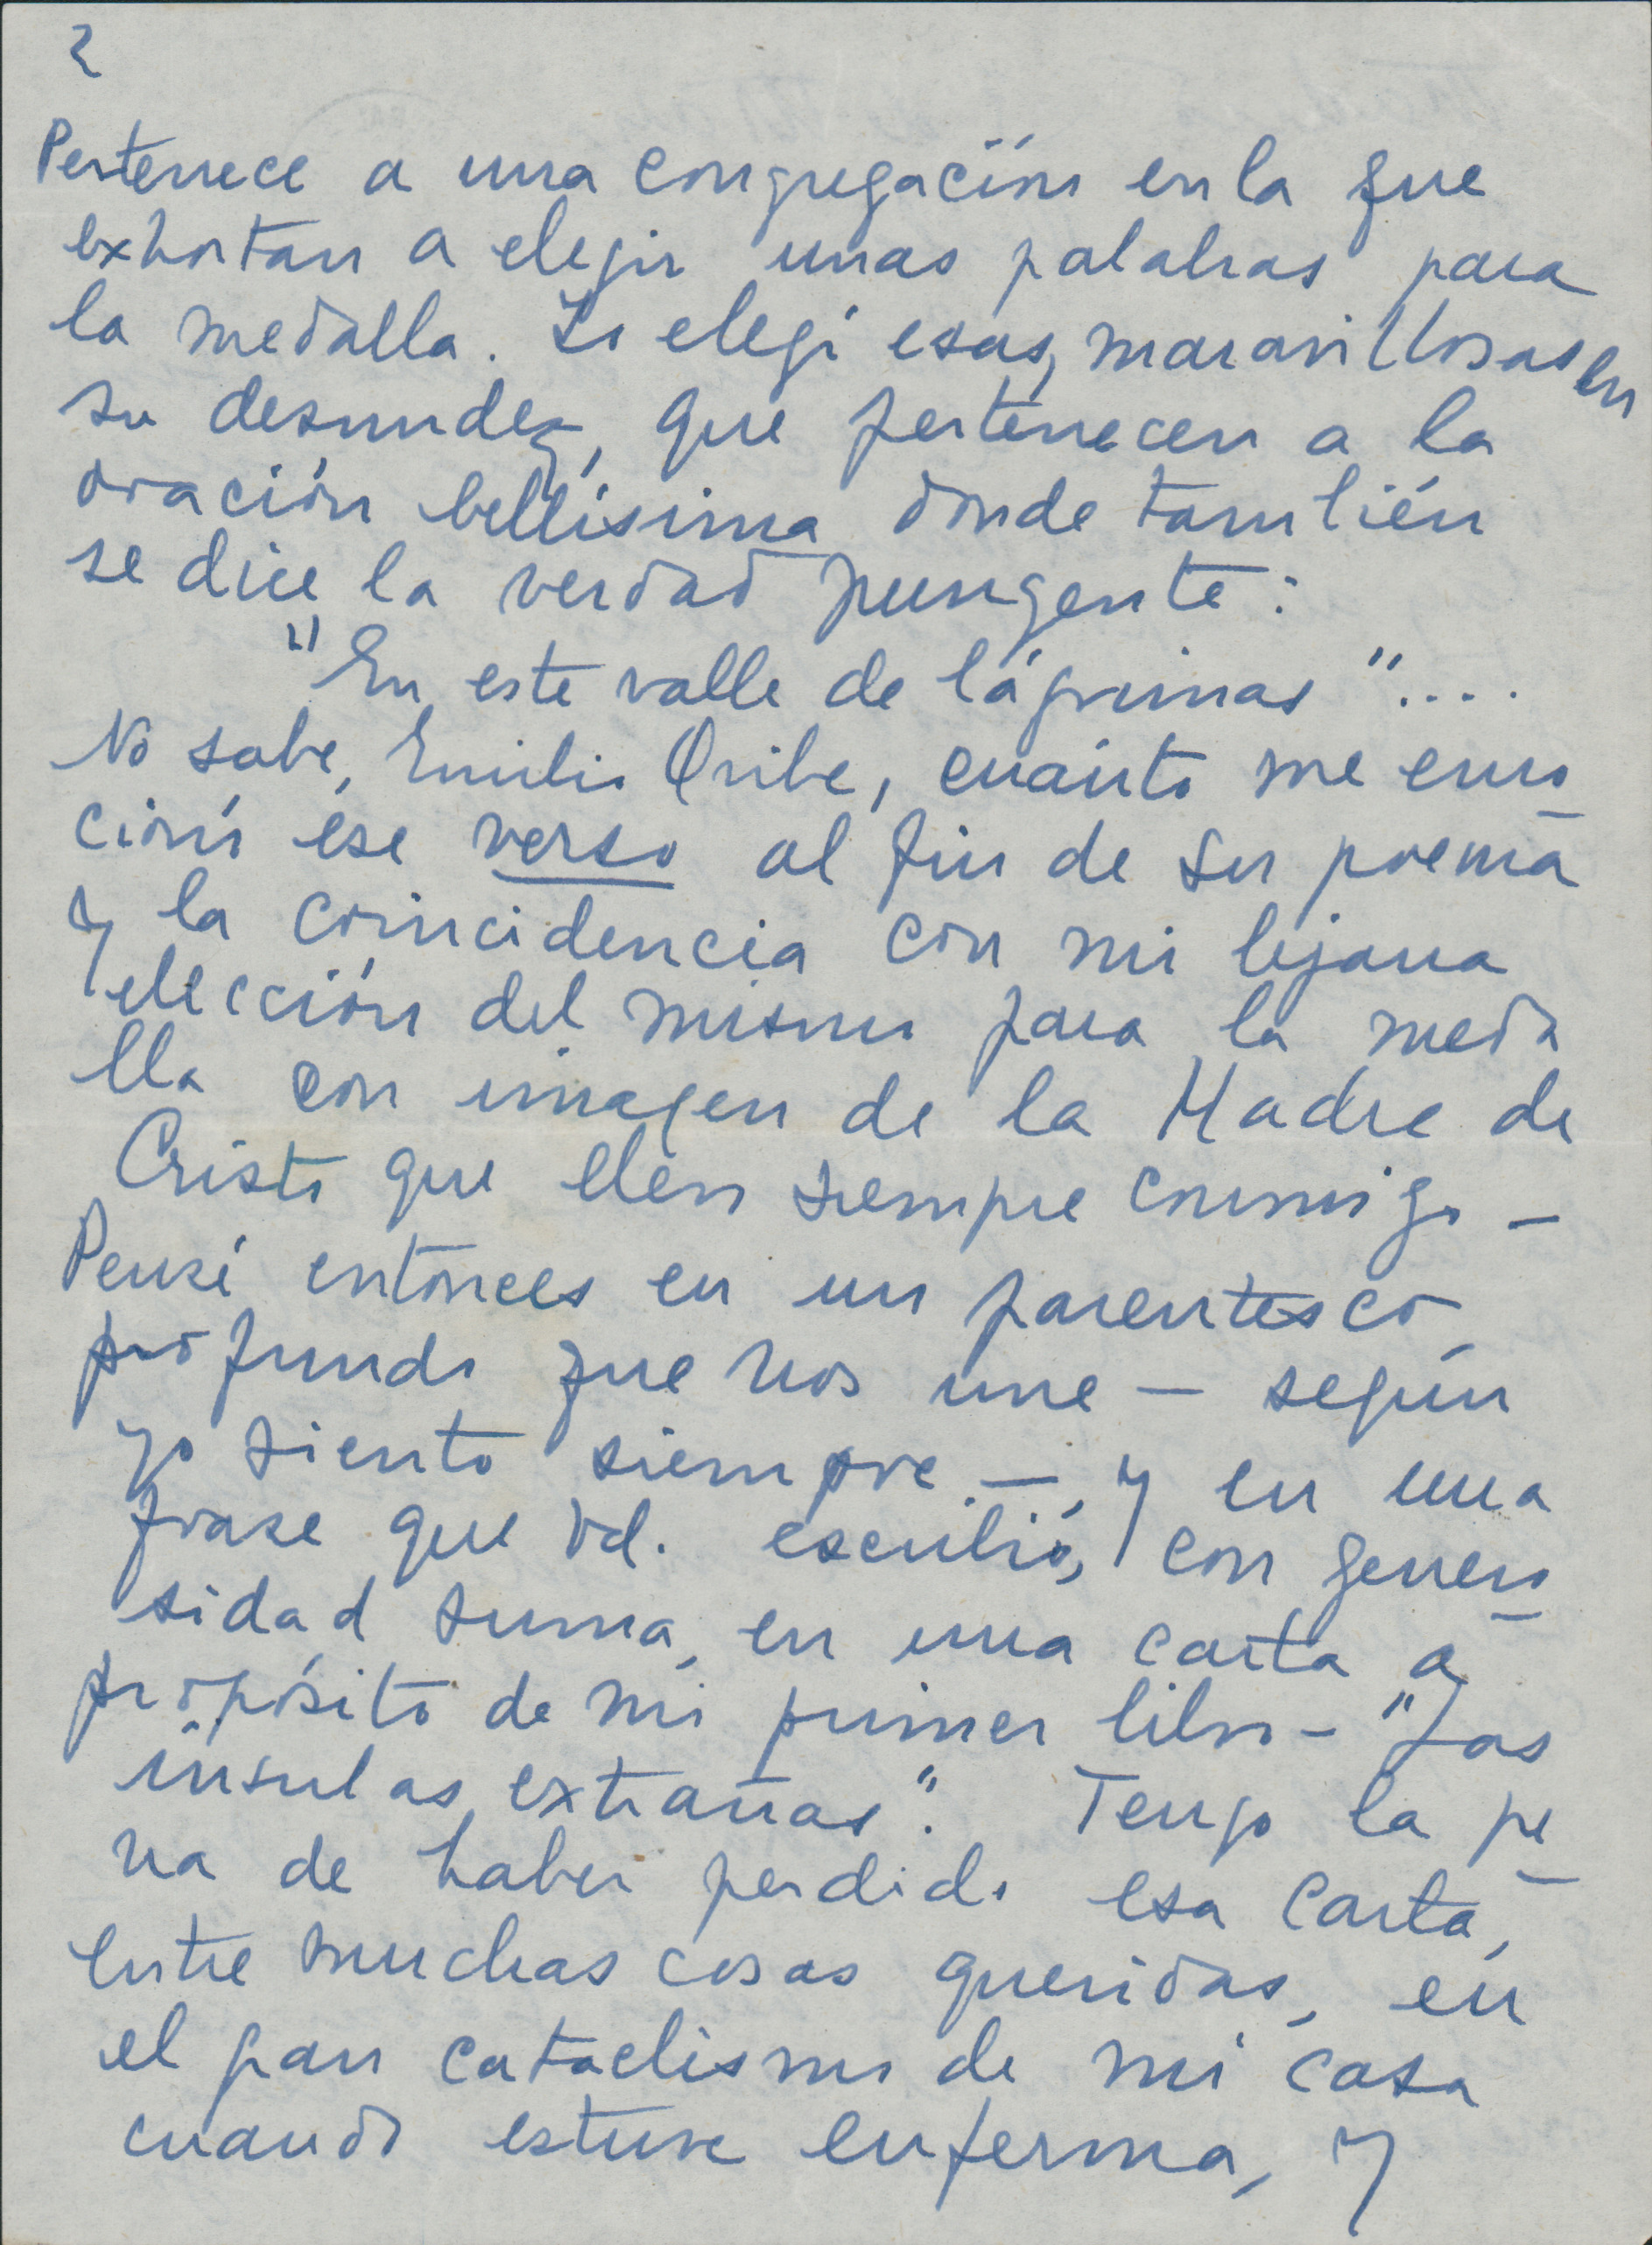 2
Pertenece a una congregación en la que
exhortan a elegir unas palabras para
la medalla. Yo elegí esas, maravillosas en
su desnudez, que pertenecen a la
oración bellísima donde también
se dice la verdad pungente:
"En este valle de lágrimas"....
No sabe, Emilio Oribe, cuánto me emo
cionó ese verso al fin de su poema
y la coincidencia con mi lejana
elección del mismo para la meda
lla con imagen de la Madre de
Cristo que llevo siempre conmigo -
Pensé entonces en un parentesco
profundo que nos une - según
yo siento siempre -, y en una
frase que Vd. escribió, con genero
sidad suma, en una carta a
propósito de mi primer libro - "Las
ínsulas extrañas". Tengo la pe
na de haber perdido esa carta,
entre muchas cosas queridas, en
el gran cataclismo de mi casa
cuando estuve enferma, y